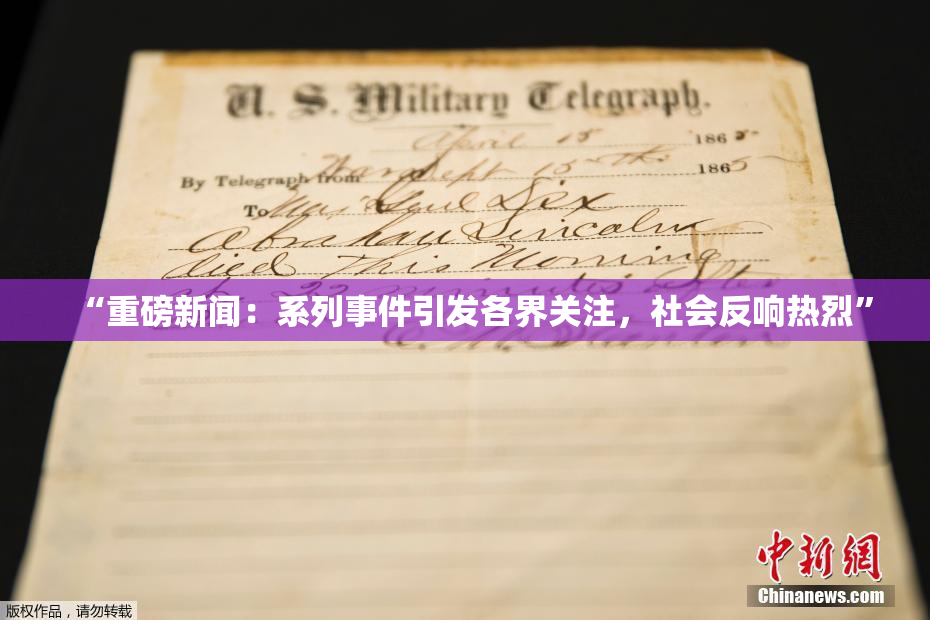 U. S. Military Telegraph.
April 15 1865
By Telegraph from War Dept 15th 1865
To Maj Genl Dix
Abraham Lincoln
died This Morning
at 22 minutes after
“重磅新闻：系列事件引发各界关注，社会反响热烈”
E. M. Stanton
中新网
Chinanews.com
版权作品，请勿转载